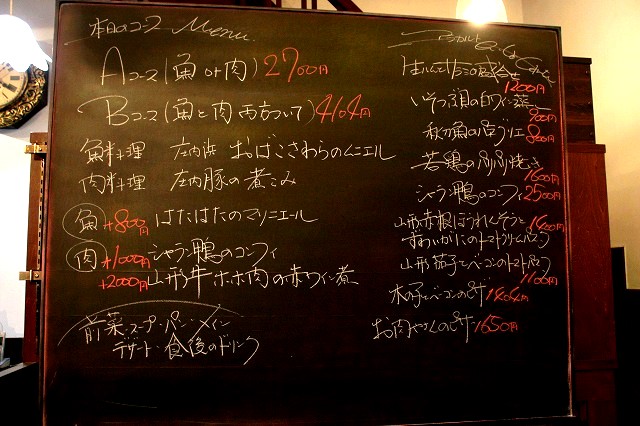 本日のコース Menu.
Aコース(魚 or 肉) 2700円
Bコース(魚と肉両方ついて) 4104円
魚料理 庄内浜 おばこさわらのムニエル
肉料理 庄内豚の煮こみ
魚 +800円 はたはたのマリニエール
肉 +1000円 シャラン鴨のコンフィ
+2000円 山形牛ホホ肉の赤ワイン煮
前菜・スープ・パン・メイン
デザート・食後のドリンク
アラカルト
生ハムと 盛合せ
1200円
いそつぶ貝の白ワイン蒸し
900円
秋刀魚の 800円
若鶏の 焼き
1600円
シャラン鴨のコンフィ
2500円
山形赤根ほうれんそうと 1400円
ずわいがにのトマトクリームパスタ
山形茄子とベーコンのトマトパスタ
1100円
木の子とベーコンのピザ 1404円
お肉やさんのピザ 1650円